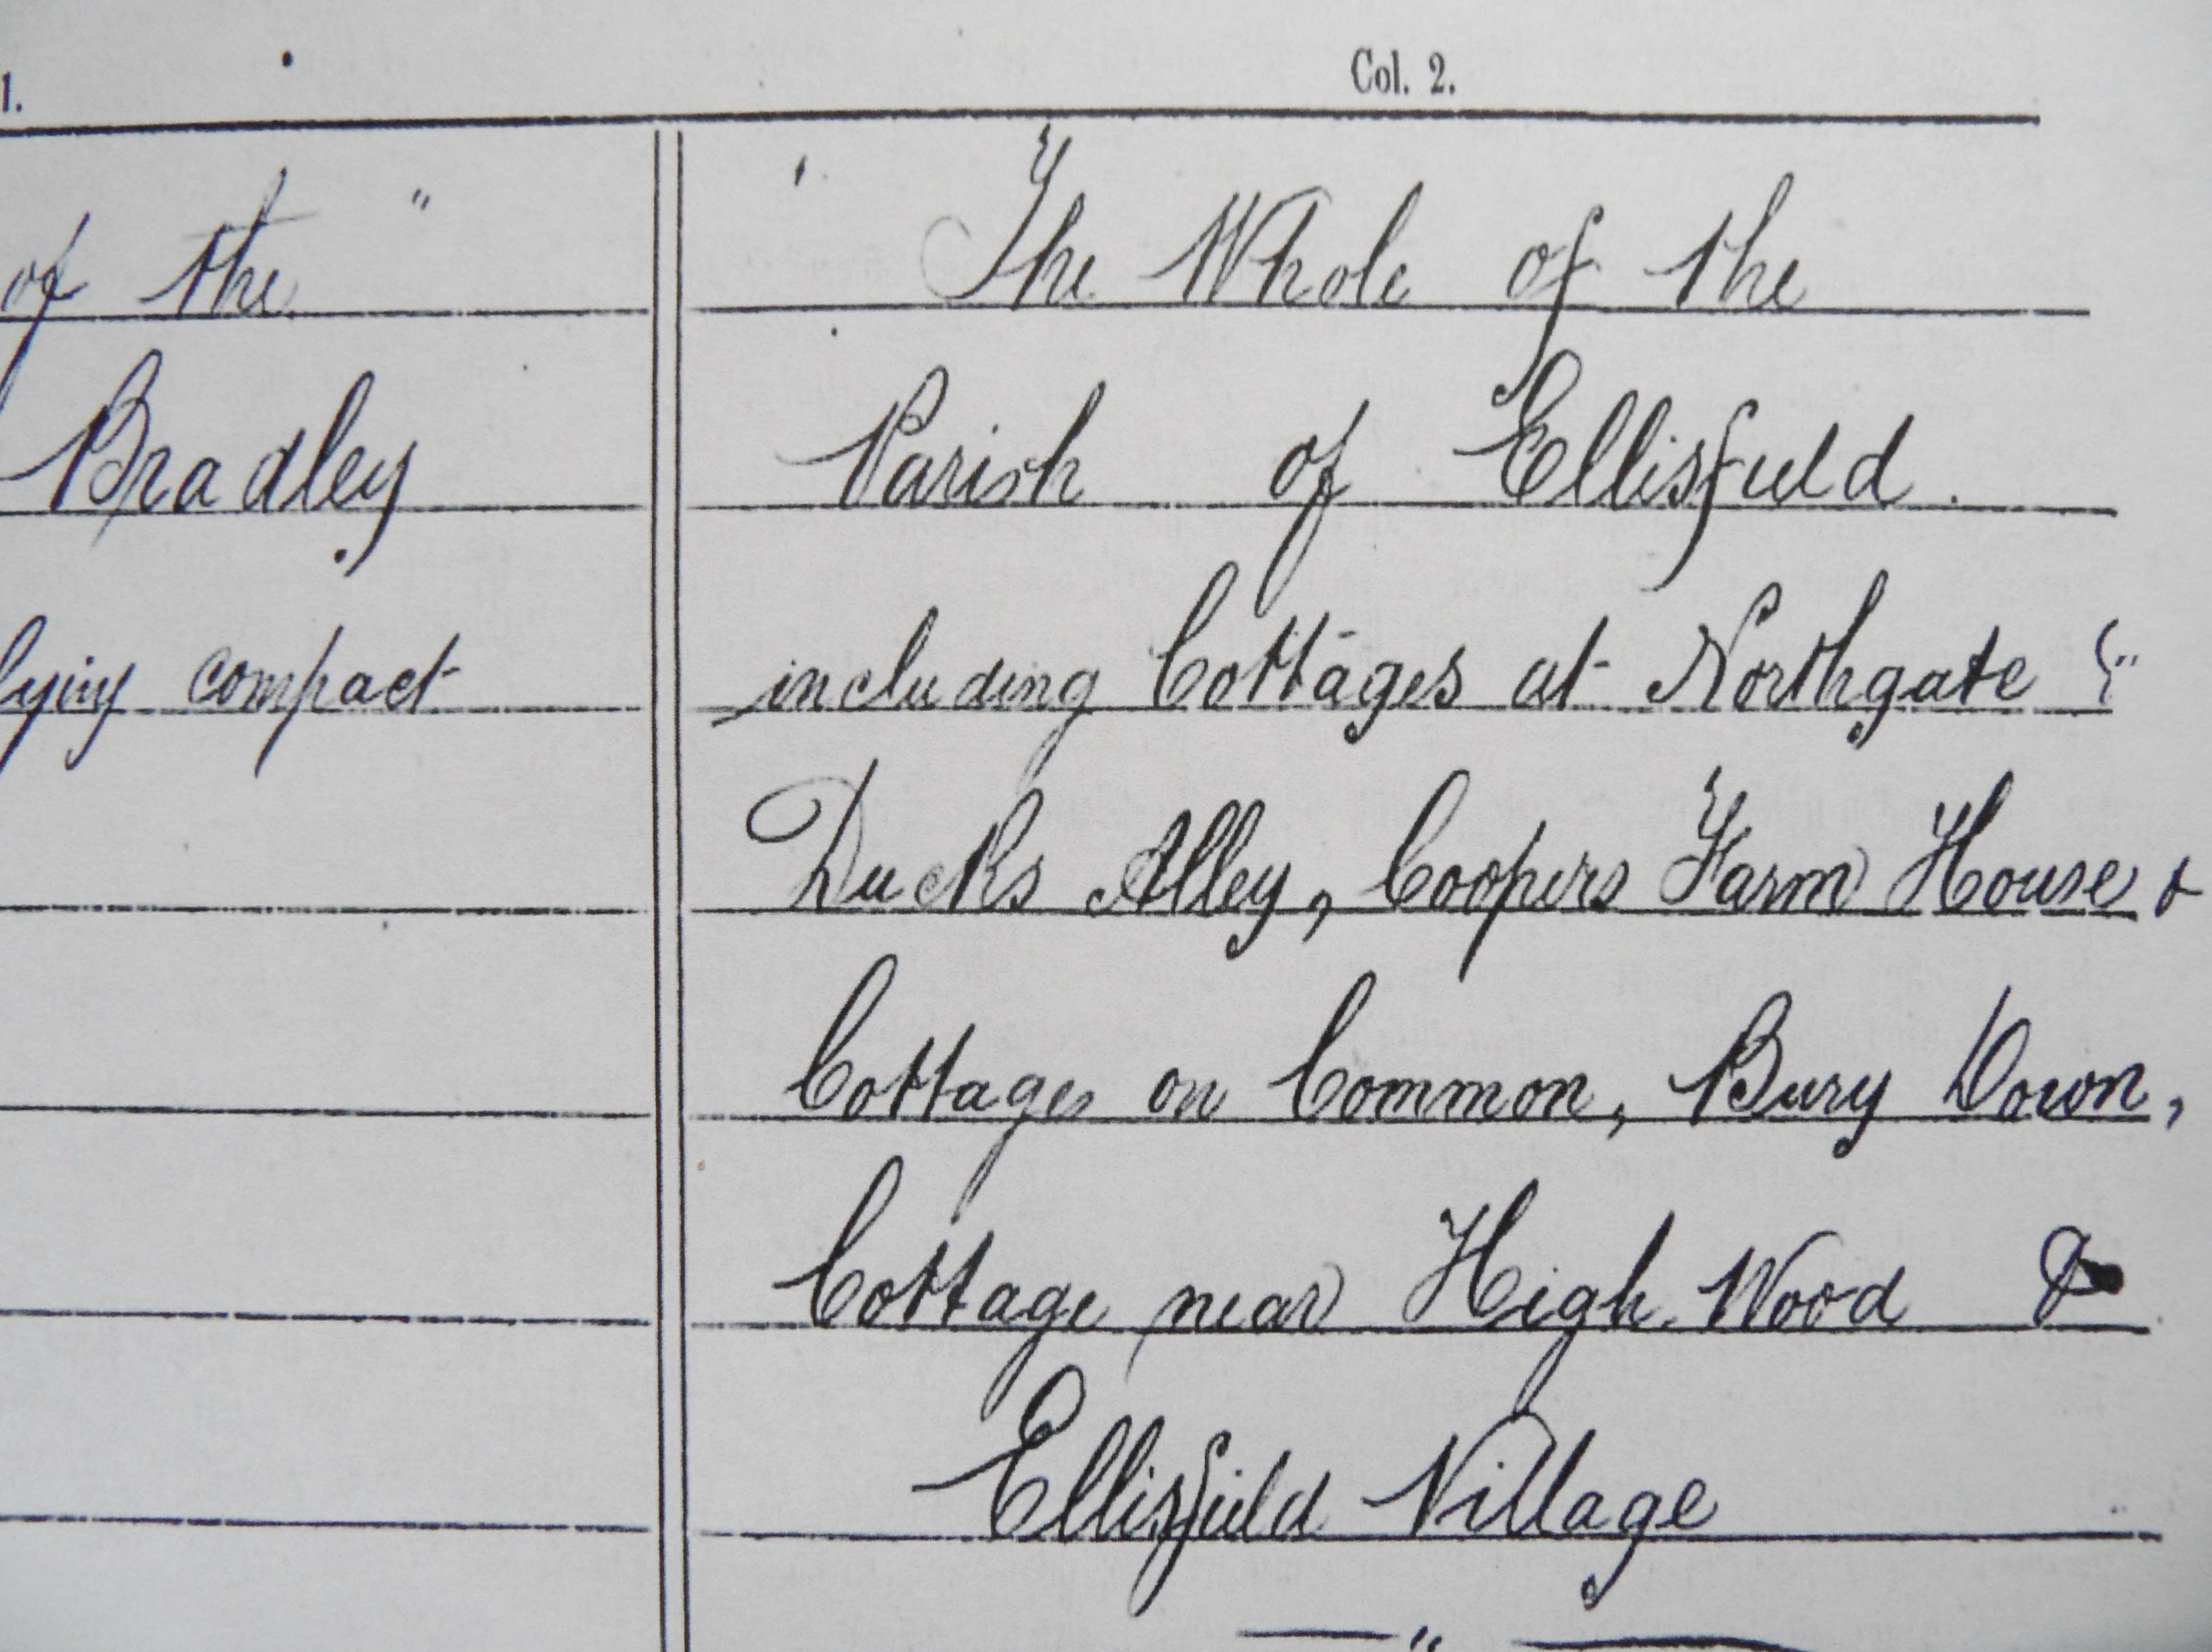 1.
Col. 2.
of the "
Bradley
lying compact
The Whole of the
Parish of Ellisfield.
including Cottages at Northgate &
Ducks Alley, Coopers Farm House &
Cottages on Common, Bury Down,
Cottage near High Wood &
Ellisfield Village
— " —